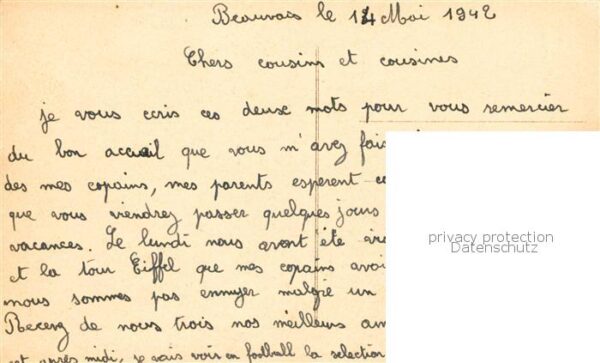 Beauvais le 14 Mai 1942
Chers cousins et cousines
je vous ecris ces deux mots pour vous remercier
du bon accueil que vous m'avez fais
des mes copains, mes parents esperent
que vous viendrez passer quelques jours
vacances. Le lundi nous avont été
privacy protection
Datenschutz
et la tour Eiffel que mes copains
nous sommes pas ennuyer malgré un
Recevez de nous trois nos meilleurs
et après midi, je vais voir en football la selection